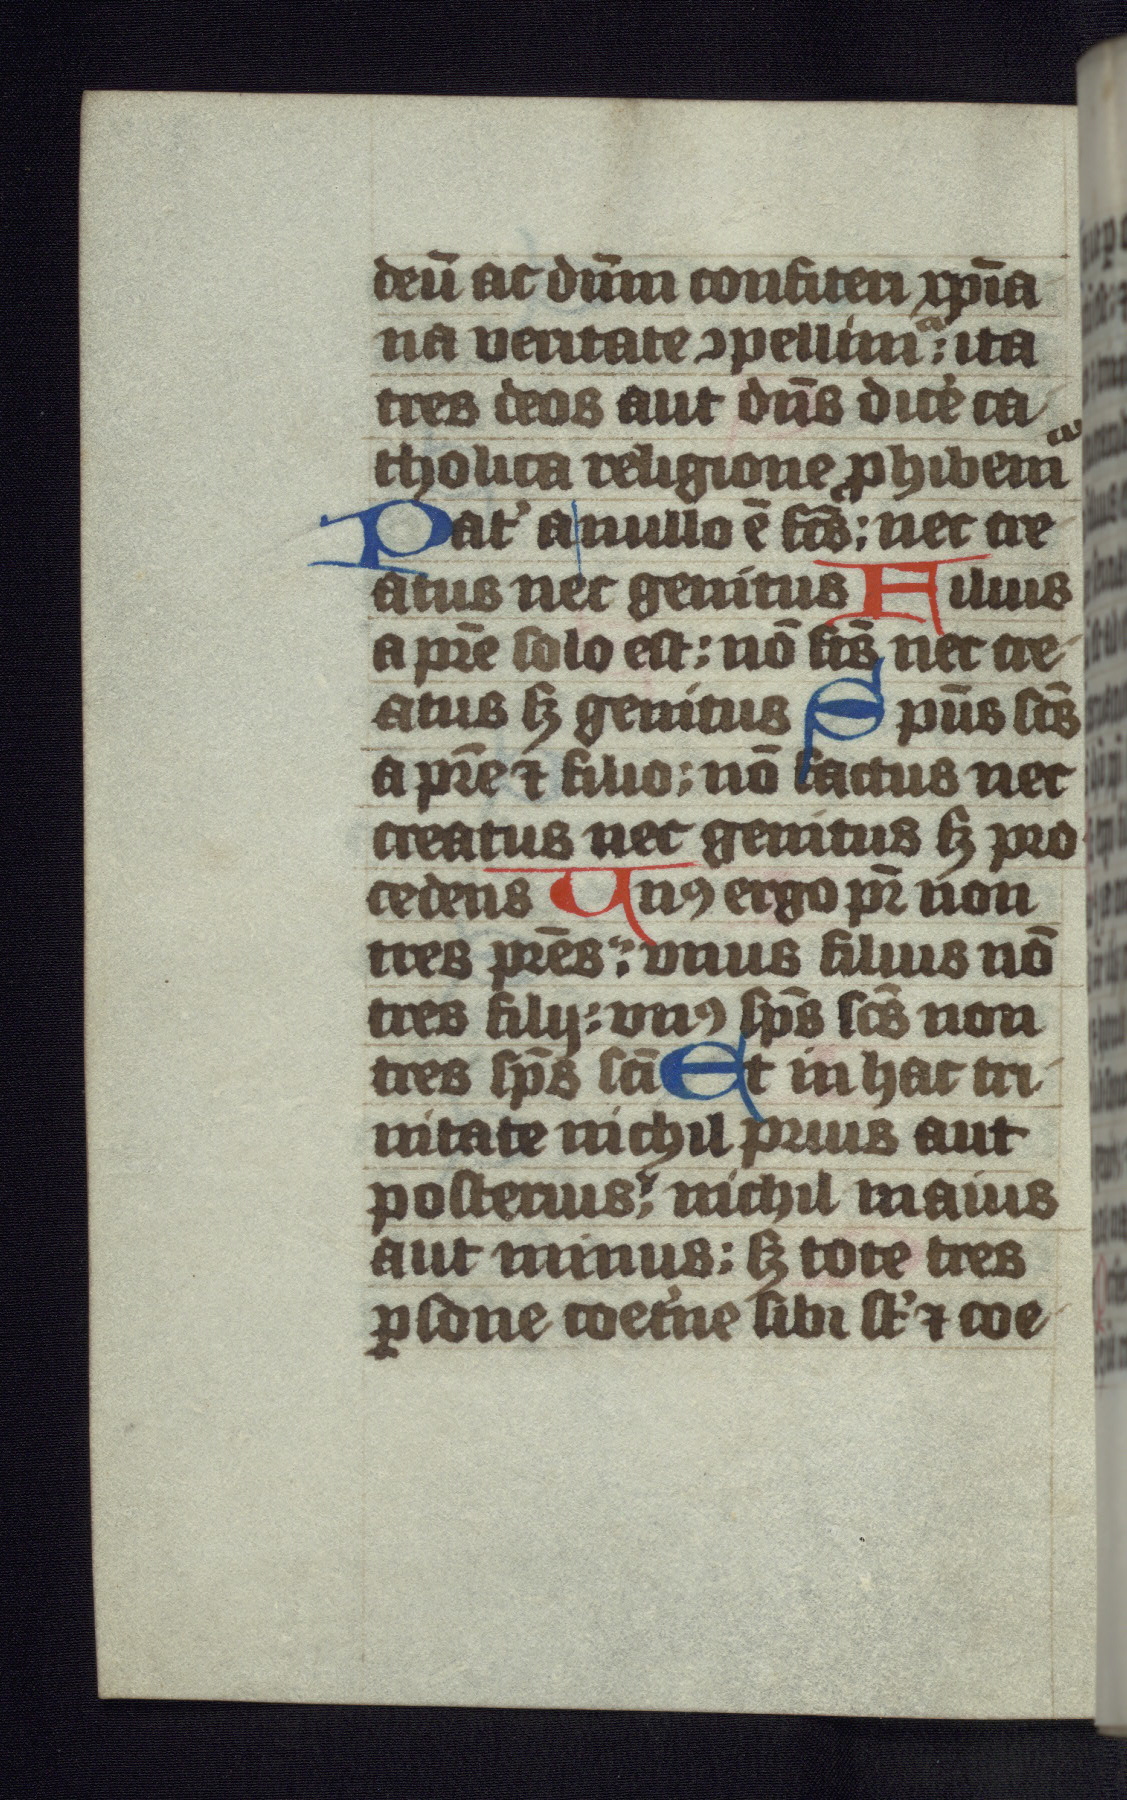 deū ac dūm confiteri xp̄ia
na veritate ꝯpellimᷓ: ita
tres deos aut dn̄s dice᷑ ca
tholica religione ꝓhibemᷓ
Pat᷑ a nullo ē fc̄s; nec cre
atus nec genitus Filius
a pr̄e solo est: nō fc̄s nec cre
atus sꝫ genitus Spūs sc̄s
a pr̄e ⁊ filio: nō factus nec
creatus nec genitus sꝫ pro
cedens Unꝰ ergo pr̄ non
tres pr̄es: vnus filius nō
tres filij: vnꝰ sp̄s sc̄s non
tres sp̄s sc̄i Et in hac tri
nitate nichil prius aut
posterius: nichil maius
aut minus: sꝫ tote tres
ꝑsone coet᷑ne sibi st᷑ ⁊ coe